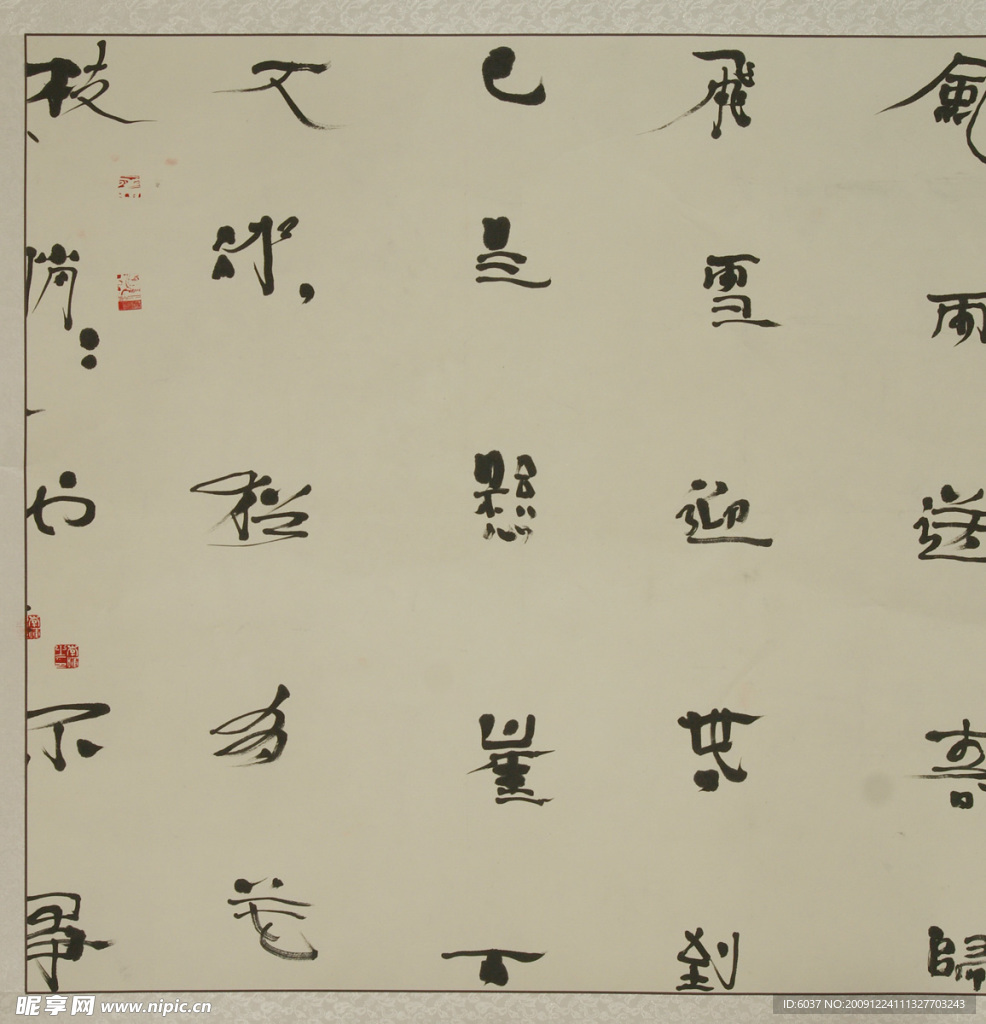 風雨送春歸
飛雪迎春到
已是懸崖百
丈冰，猶有花
枝俏：也不爭
昵享网 www.nipic.cn
ID:6037 NO:20091224111327703243